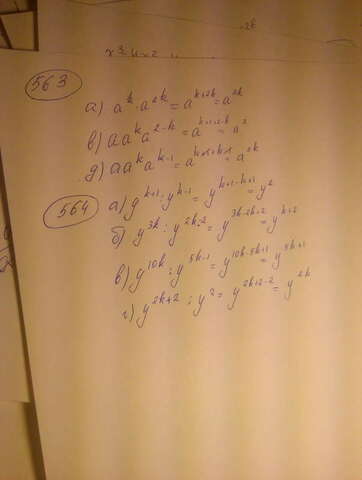 563
а) a^k · a^2k = a^k+2k = a^3k
в) a a^k a^2-k = a^k+1+2-k = a^3
д) a a^k a^k-1 = a^k+1+k-1 = a^2k
564
а) y^k+1 : y^k-1 = y^k+1-k+1 = y^2
б) y^3k : y^2k-2 = y^3k-2k+2 = y^k+2
в) y^10k : y^5k-1 = y^10k-5k+1 = y^5k+1
г) y^2k+2 : y^2 = y^2k+2-2 = y^2k